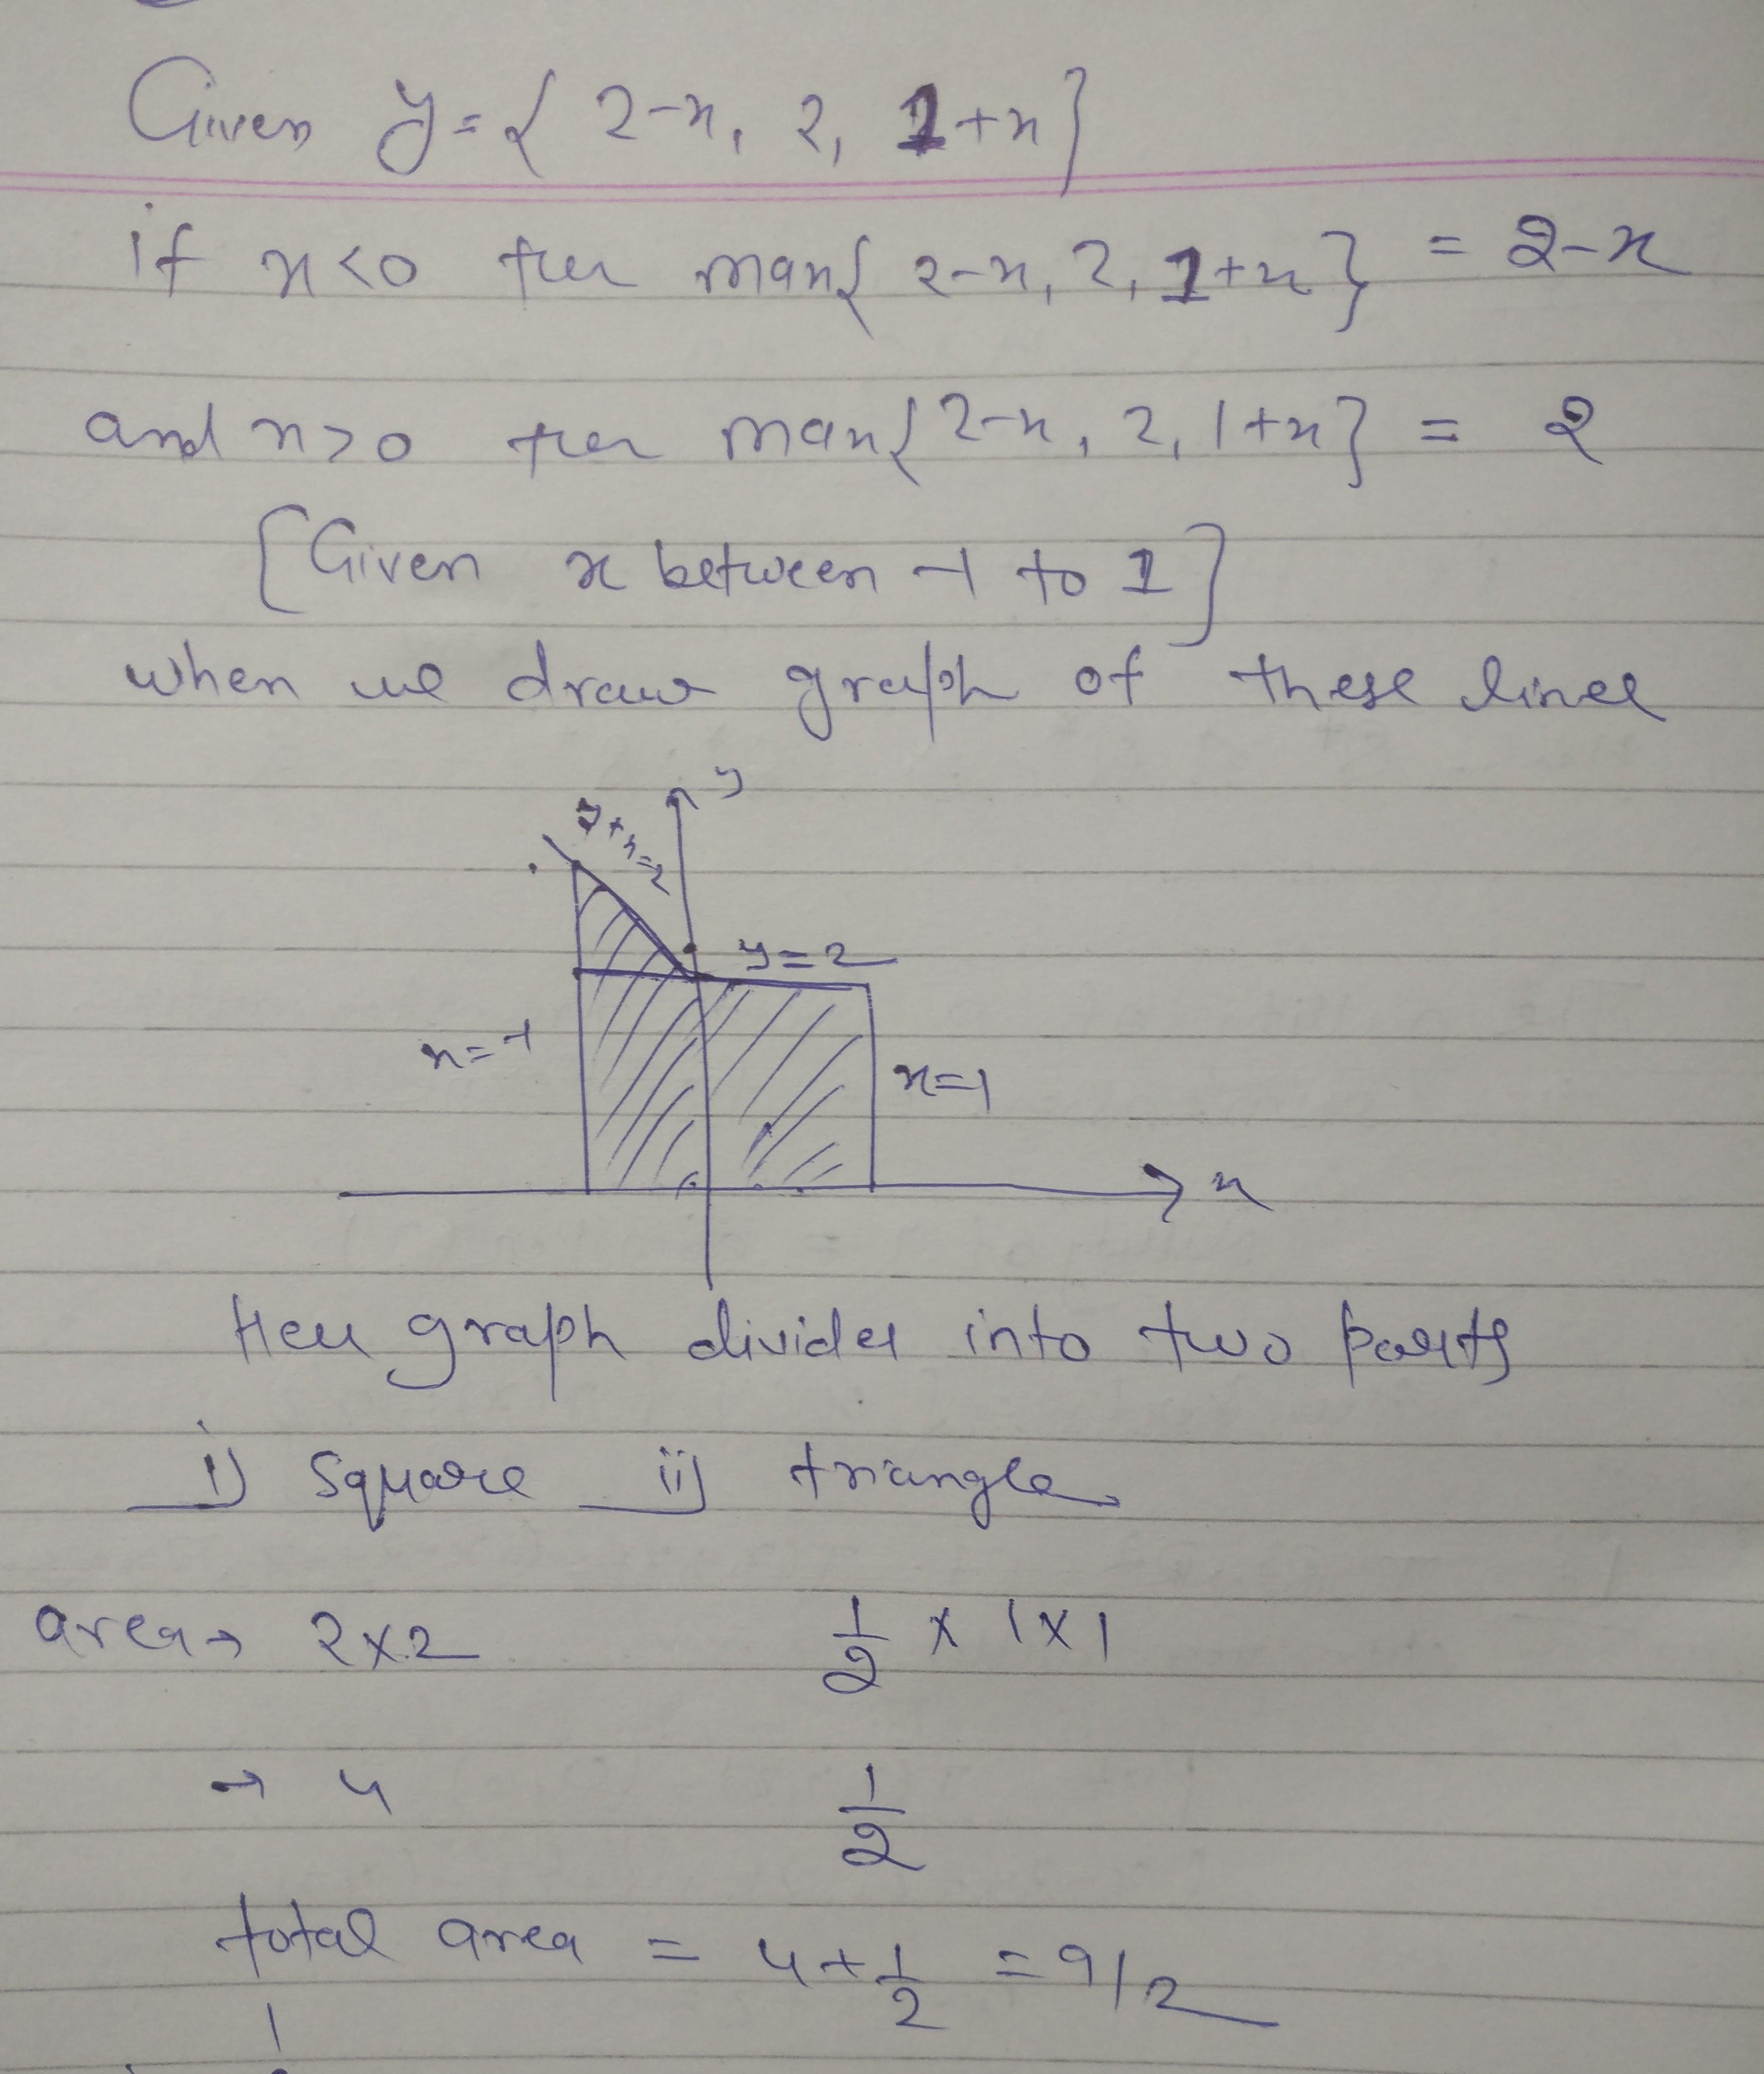 Given y = { 2-x, 2, 1+x }
if x<0 then max{ 2-x, 2, 1+x } = 2-x
and x>0 then max{ 2-x, 2, 1+x } = 2
[Given x between -1 to 1]
when we draw graph of these lines
y
y+x=2
y=2
x=-1
x=1
x
Here graph divides into two parts
i) Square ii) triangle
area → 2×2 1/2 × 1×1
→ 4 1/2
total area = 4 + 1/2 = 9/2